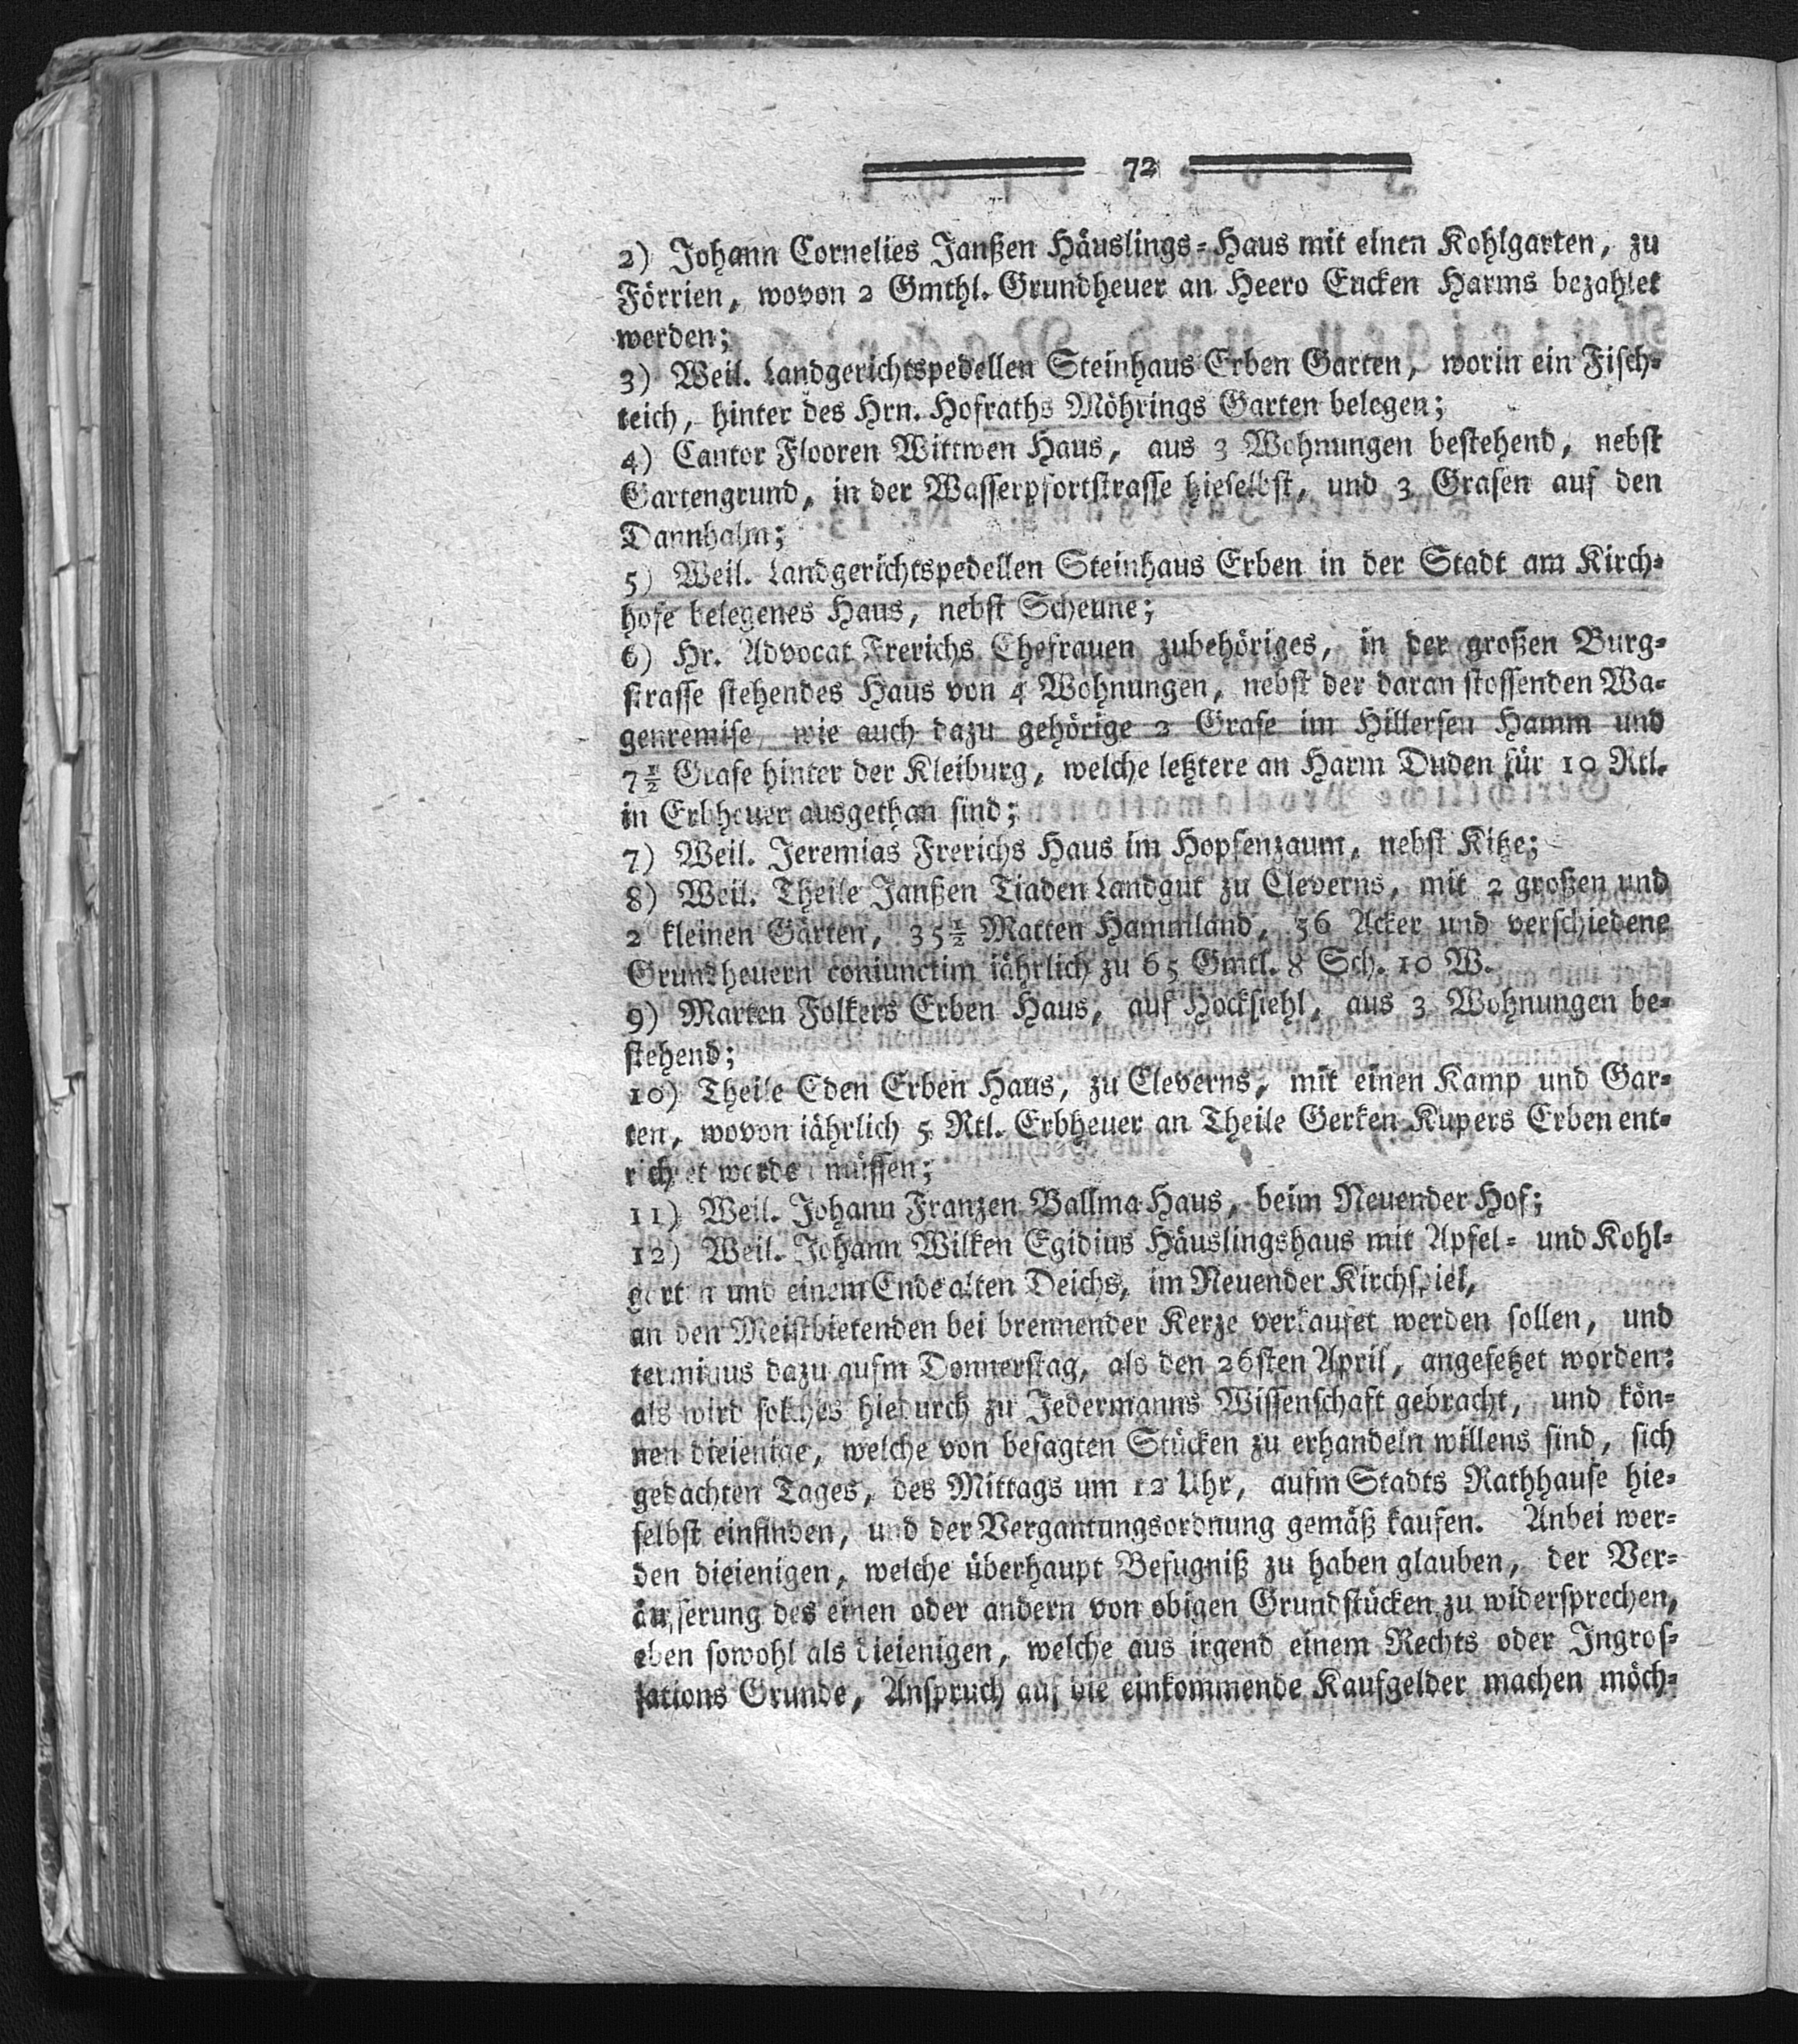 72
2) Johann Cornelies Janßen Häuslings-Haus mit einen Kohlgarten, zu
Förrien, wovon 2 Gmthl. Grundheuer an Heero Eucken Harms bezahlet
werden;
3) Weil. Landgerichtspedellen Steinhaus Erben Garten, worin ein Fisch-
teich, hinter des Hrn. Hofraths Möhrings Garten belegen;
4) Cantor Flooren Wittwen Haus, aus 3 Wohnungen bestehend, nebst
Gartengrund, in der Wasserpfortstrasse hieselbst, und 3 Grasen auf den
Dannhalm;
5) Weil. Landgerichtspedellen Steinhaus Erben in der Stadt am Kirch-
hofe belegenes Haus, nebst Scheune;
6) Hr. Advocat Frerichs Ehefrauen zubehöriges, in der großen Burg-
strasse stehendes Haus von 4 Wohnungen, nebst der daran stossenden Wa-
genremise, wie auch dazu gehörige 2 Grase im Hillersen Hamm und
7½ Grase hinter der Kleiburg, welche letztere an Harm Duden für 10 Rtl.
in Erbheuer ausgethan sind;
7) Weil. Jeremias Frerichs Haus im Hopfenzaum, nebst Kitze;
8) Weil. Theile Janßen Tiaden Landgut zu Cleverns, mit 2 großen und
2 kleinen Gärten, 35½ Matten Hammland, 36 Acker und verschiedene
Grundheuern coniunctim jährlich zu 65 Gmtl. 8 Sch. 10 W.
9) Marten Folkers Erben Haus, auf Hocksiehl, aus 3 Wohnungen be-
stehend;
10) Theile Eden Erben Haus, zu Cleverns, mit einen Kamp und Gar-
ten, wovon jährlich 5 Rtl. Erbheuer an Theile Gerken Kupers Erben ent-
richtet werden müssen;
11) Weil. Johann Franzen Ballma Haus, beim Neuender Hof;
12) Weil. Johann Wilken Egidius Häuslingshaus mit Apfel- und Kohl-
garten und einem Ende alten Deichs, im Neuender Kirchspiel,
an den Meistbietenden bei brennender Kerze verkaufet werden sollen, und
terminus dazu aufm Donnerstag, als den 26sten April, angesetzet worden:
als wird solches hiedurch zu Jedermanns Wissenschaft gebracht, und kön-
nen dieienige, welche von besagten Stücken zu erhandeln willens sind, sich
gedachten Tages, des Mittags um 12 Uhr, aufm Stadts Rathhause hie-
selbst einfinden, und der Vergantungsordnung gemäß kaufen. Anbei wer-
den dieienigen, welche überhaupt Befugniß zu haben glauben, der Ver-
äusserung des einen oder andern von obigen Grundstücken zu widersprechen,
eben sowohl als dieienigen, welche aus irgend einem Rechts oder Ingros-
sations Grunde, Anspruch auf die einkommende Kaufgelder machen möch-